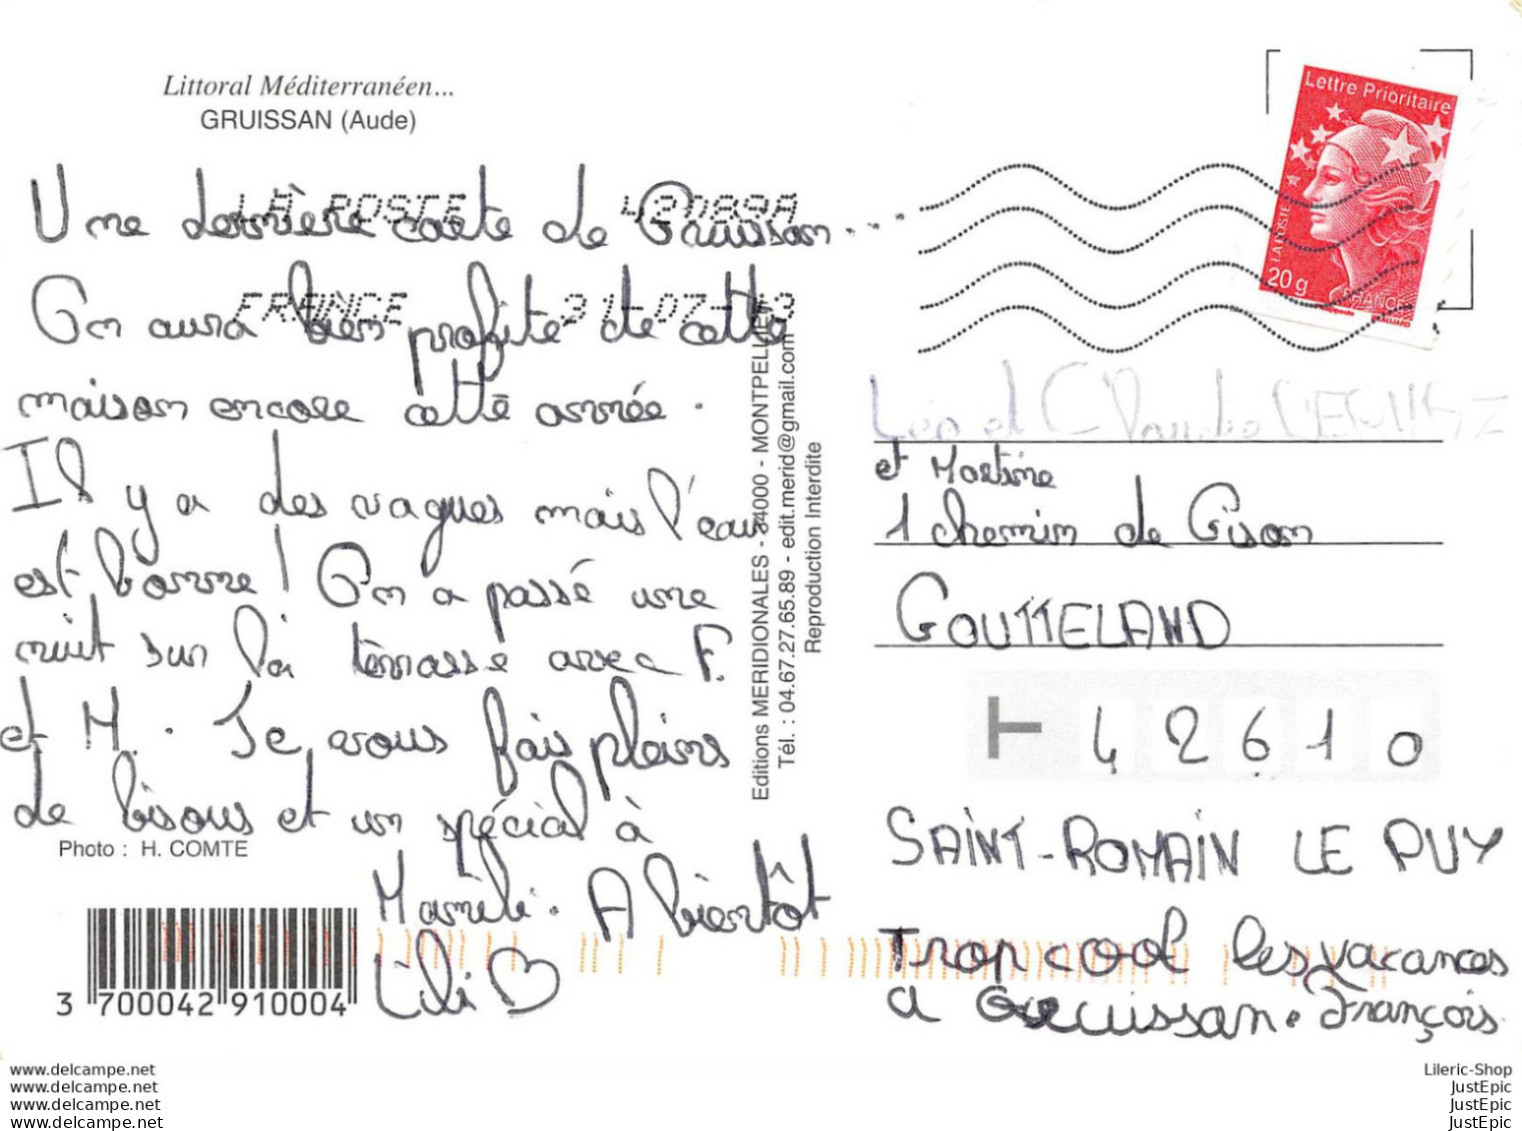 Littoral Méditerranéen...
GRUISSAN (Aude)
LA POSTE 42089A
FRANCE 31-07-13
Lettre Prioritaire
LA POSTE
20g
FRANCE
Une dernière carte de Gruissan...
On aura bien profité de cette
maison encore cette année.
Il y a des vagues mais l'eau
est bonne ! On a passé une
nuit sur la terrasse avec F.
et M. Je vous fais pleins
de bisous et un spécial à
Mamili. A bientôt
Lili ♡
Photo : H. COMTE
3 700042 910004
Editions MERIDIONALES - 34000 - MONTPELLIER
Tél. : 04.67.27.65.89 - edit.merid@gmail.com
Reproduction Interdite
Léo et Claude
et Martine
1 chemin de Gison
GOUTTELAND
T 42610
SAINT-ROMAIN LE PUY
Trop cool les vacances
a Gruissan. François.
www.delcampe.net
www.delcampe.net
www.delcampe.net
www.delcampe.net
Lileric-Shop
JustEpic
JustEpic
JustEpic